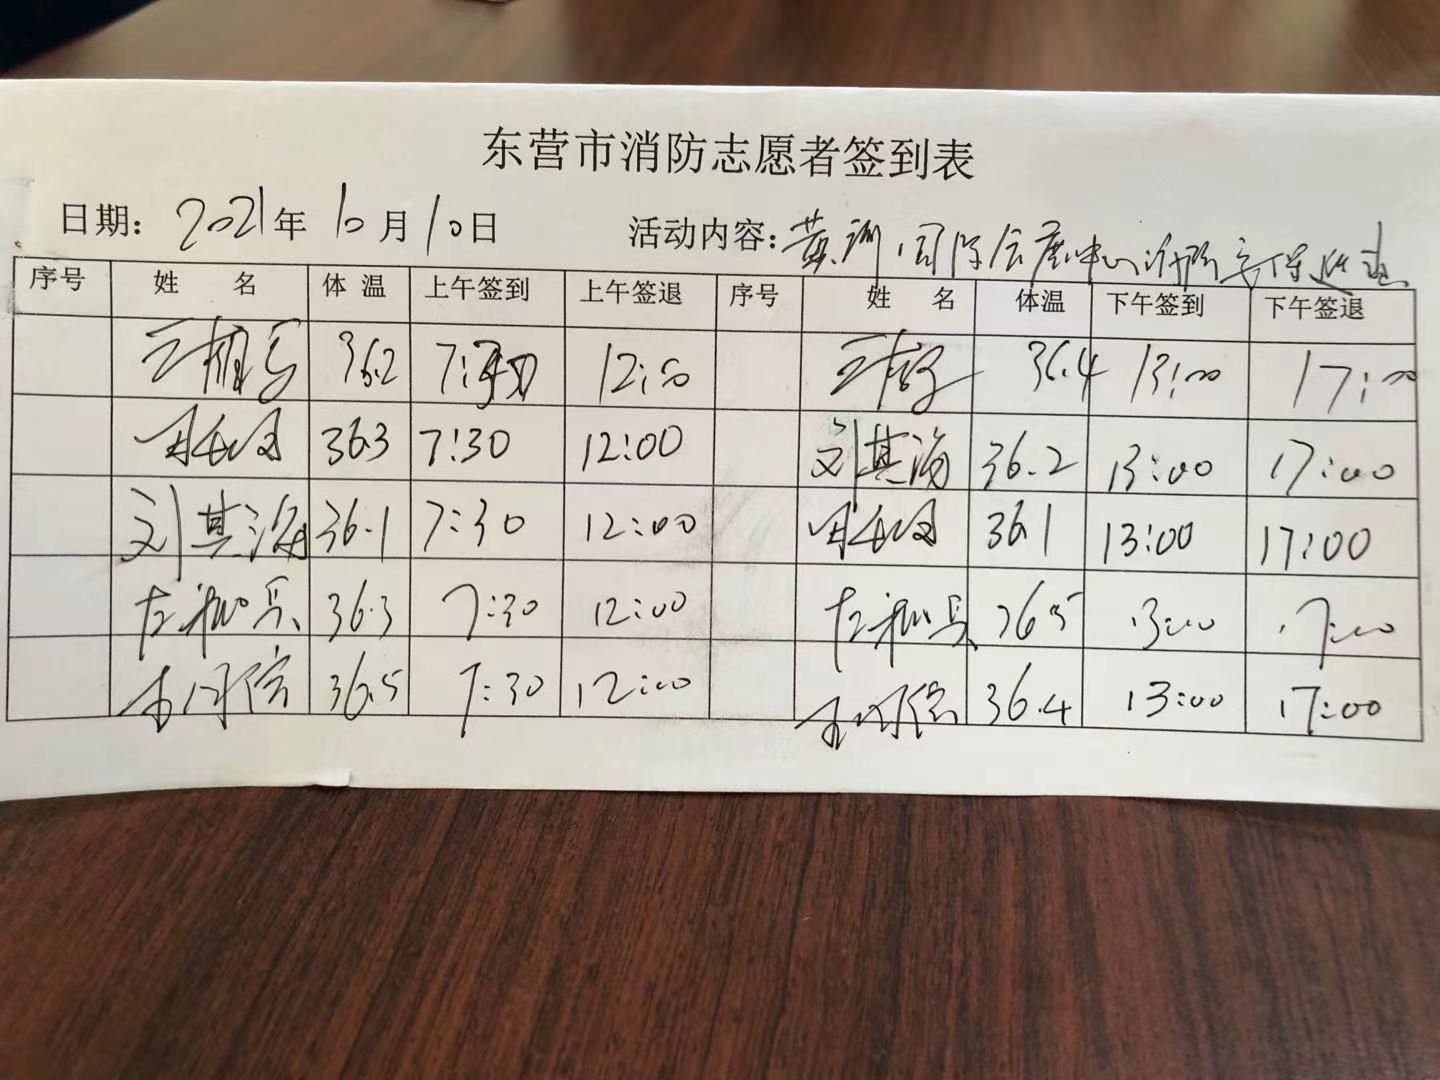 东营市消防志愿者签到表
日期: 2021年10月10日 活动内容: 黄河国际会展中心消防安保巡查
序号 姓 名 体温 上午签到 上午签退 序号 姓 名 体温 下午签到 下午签退
36.2 7:30 12:00 36.4 13:00 17:00
36.3 7:30 12:00 刘其海 36.2 13:00 17:00
刘其海 36.1 7:30 12:00 36.1 13:00 17:00
36.3 7:30 12:00 36.5 13:00 17:00
36.5 7:30 12:00 36.4 13:00 17:00